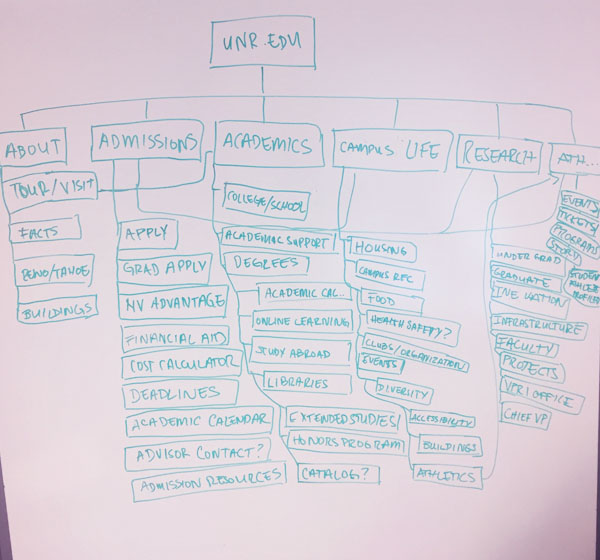 UNR.EDU
ABOUT
TOUR/VISIT
FACTS
RENO/TAHOE
BUILDINGS
ADMISSIONS
APPLY
GRAD APPLY
NV ADVANTAGE
FINANCIAL AID
COST CALCULATOR
DEADLINES
ACADEMIC CALENDAR
ADVISOR CONTACT?
ADMISSION RESOURCES
ACADEMICS
COLLEGE/SCHOOL
ACADEMIC SUPPORT
DEGREES
ACADEMIC CAL..
ONLINE LEARNING
STUDY ABROAD
LIBRARIES
EXTENDED STUDIES
HONORS PROGRAM
CATALOG?
CAMPUS LIFE
HOUSING
CAMPUS REC
FOOD
HEALTH SAFETY?
CLUBS/ORGANIZATION
EVENTS
DIVERSITY
ACCESSIBILITY
BUILDINGS
ATHLETICS
RESEARCH
UNDERGRAD
GRADUATE
INFRASTRUCTURE
FACULTY
PROJECTS
OFFICE
CHIEF VP
ATH...
EVENTS
TICKETS/
PROGRAMS
STORY
STUDENT